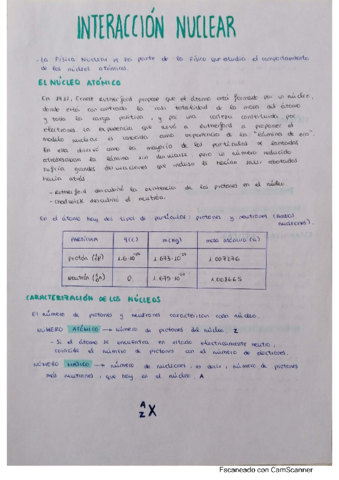 INTERACCIÓN NUCLEAR
- La Física Nuclear es la parte de la Física que estudia el comportamiento
de los núcleos atómicos.
EL NÚCLEO ATÓMICO
En 1911, Ernest Rutherford propuso que el átomo está formado por un núcleo,
donde está concentrada la casi totalidad de la masa del átomo
y toda la carga positiva, y por una corteza constituida por
electrones. La experiencia que llevó a Rutherford a proponer el
modelo nuclear es conocida como experiencia de la "lámina de oro".
En ella observó que la mayoría de las partículas
atravesaban la lámina sin desviarse, pero un número reducido
sufría grandes desviaciones que incluso le hacían salir rebotadas
hacia atrás.
- Rutherford descubrió la existencia de los protones en el núcleo.
- Chadwick descubrió el neutrón.
En el átomo hay dos tipos de partículas: protones y neutrones
PARTÍCULA q(C) m(kg) masa atómica (u)
Protón 1.007276
Neutrón 0 1.008665
CARACTERIZACIÓN DE LOS NÚCLEOS
El número de protones y neutrones caracterizan cada núcleo.
NÚMERO ATÓMICO → número de protones del núcleo. Z
- Si el átomo se encuentra en estado eléctricamente neutro,
coincide el número de protones con el número de electrones.
NÚMERO MÁSICO → número de nucleones, es decir, número de protones
más neutrones, que hay en el núcleo. A
A
Z X
Escaneado con CamScanner